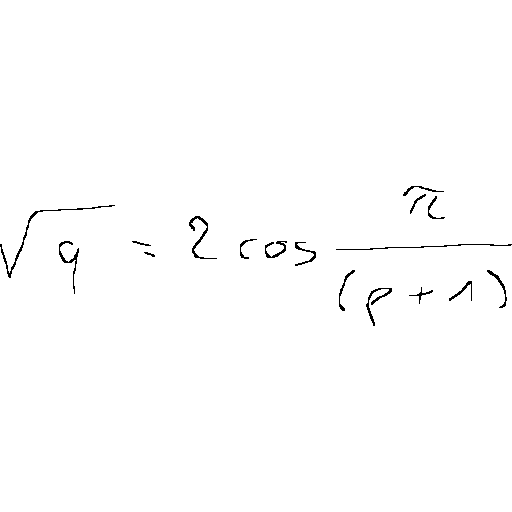 \sqrt{q} = 2 \cos \frac{\pi}{(p+1)}